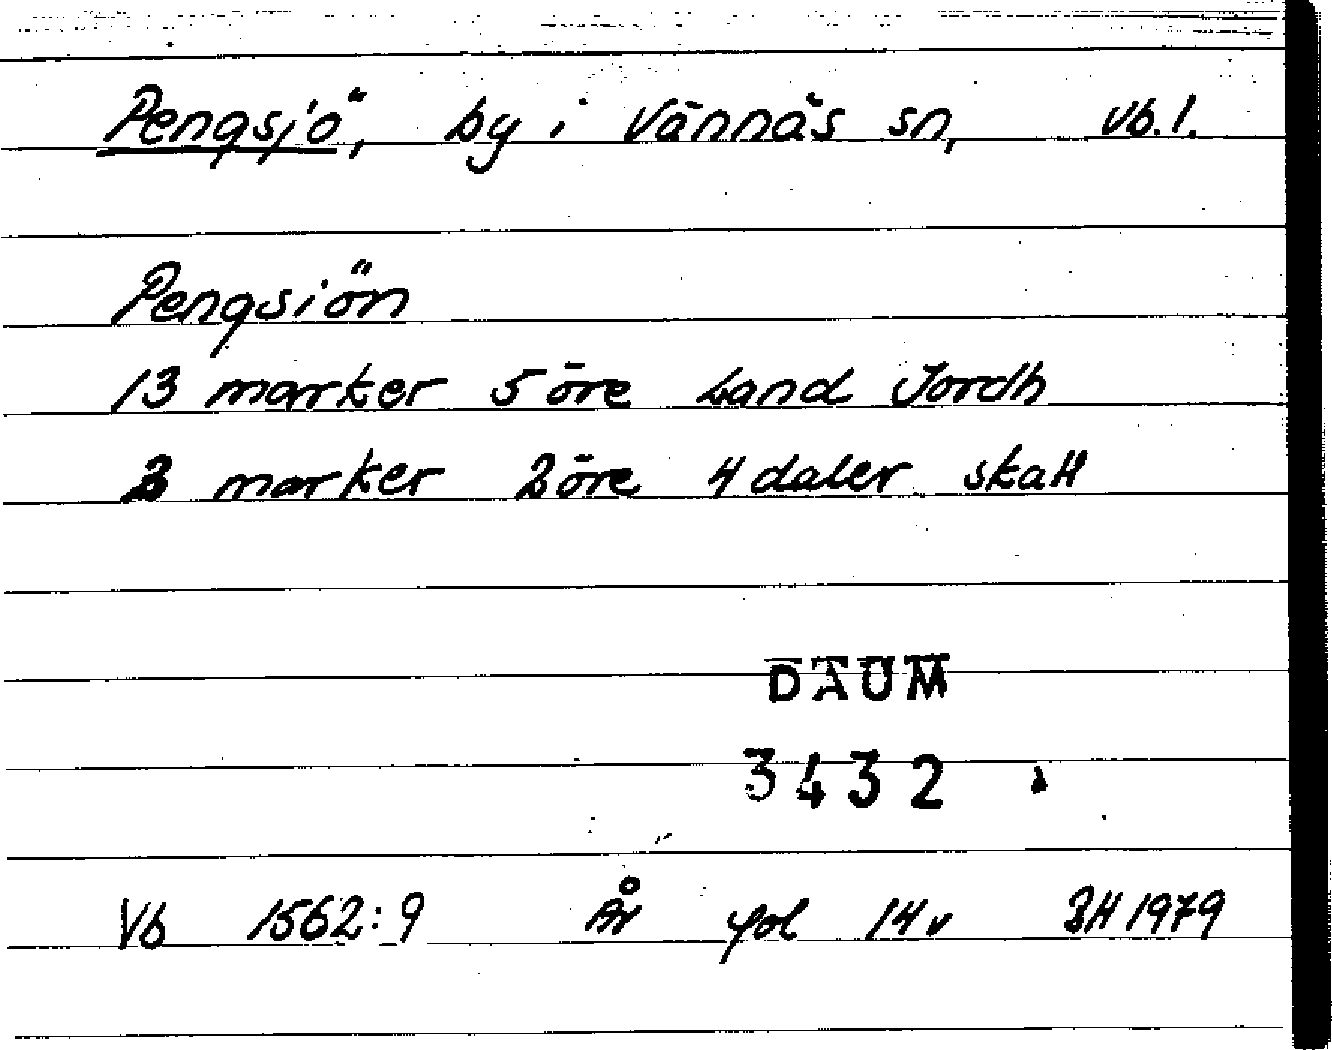 Pengsjö, by i Vännäs sn, Vb.l.
Pengsiön
13 marker 5 öre Land Jordh
2 marker 2 öre 4 daler skatt
DAUM
3432
Vb 1562:9 År fol 14v BH 1979